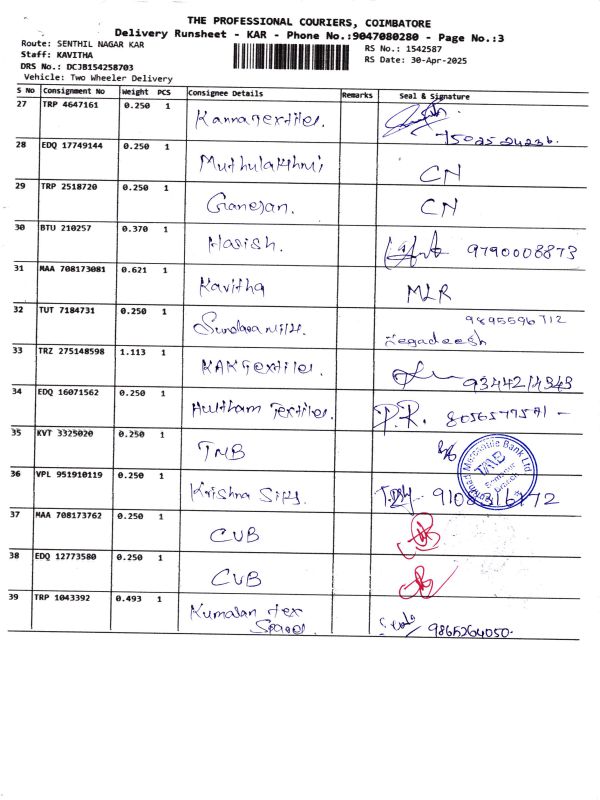 THE PROFESSIONAL COURIERS, COIMBATORE
Delivery Runsheet - KAR - Phone No.:9047080280 - Page No.:3
Route: SENTHIL NAGAR KAR
RS No.: 1542587
Staff: KAVITHA
RS Date: 30-Apr-2025
DRS No.: DCJB154258703
Vehicle: Two Wheeler Delivery
S No Consignment No Weight PCS Consignee Details Remarks Seal & Signature
27 TRP 4647161 0.250 1 Kannatextiles.
28 EDQ 17749144 0.250 1 Muthulakthmi CN
29 TRP 2518720 0.250 1 Ganesan. CN
30 BTU 210257 0.370 1 Harish. 9790008873
31 MAA 708173081 0.621 1 Kavitha MLR
32 TUT 7184731 0.250 1 9895596712
Jegadeesh
33 TRZ 275148598 1.113 1 KAK Textiles
34 EDQ 16071562 0.250 1 Textiles. P.R.
35 KVT 3325020 0.250 1 TMB
Mercantile Bank Ltd
TMB
Branch
36 VPL 951910119 0.250 1 Krishna 9108316172
37 MAA 708173762 0.250 1 CUB
38 EDQ 12773580 0.250 1 CUB
39 TRP 1043392 0.493 1 Kumalan tex 9865264050.